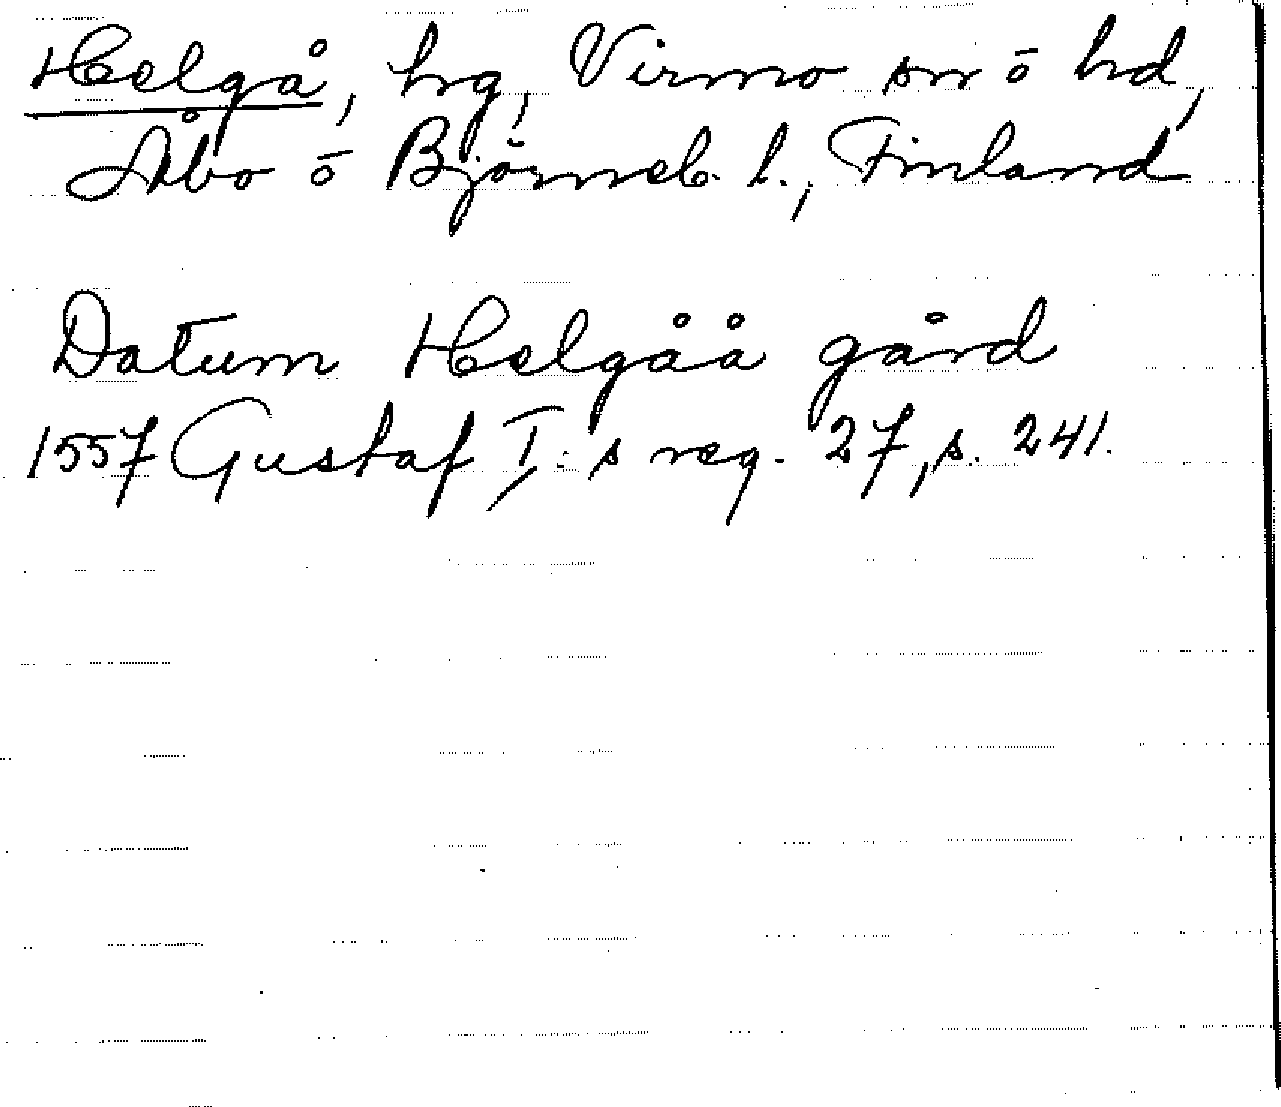 Helgå, hrg, Virmo sn o hd,
Åbo o Björneb. l., Finland
Datum Helgåå gård
1557 Gustaf I:s reg. 27, s. 241.